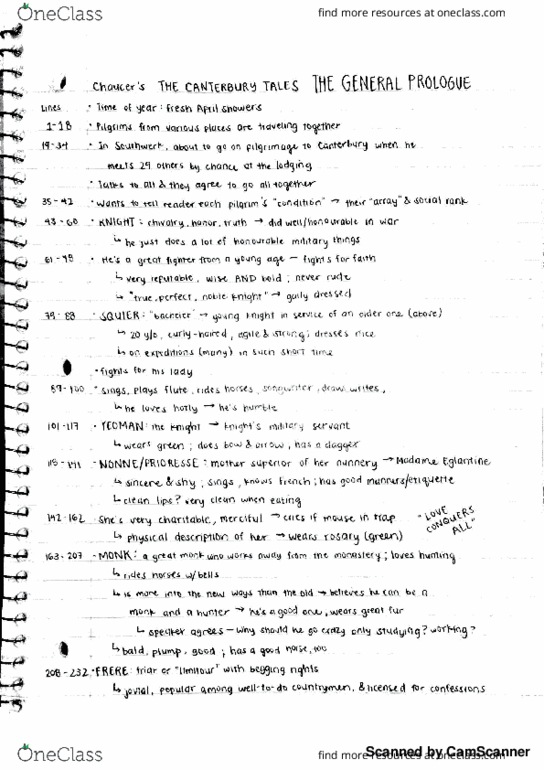 OneClass
find more resources at oneclass.com
Chaucer's THE CANTERBURY TALES THE GENERAL PROLOGUE
Lines • Time of year: fresh April showers
1-18 • Pilgrims from various places are traveling together
19-34 • In Southwerk, about to go on pilgrimage to Canterbury when he
meets 29 others by chance at the lodging
• Talks to all & they agree to go all together
35-42 • wants to tell reader each pilgrim's "condition" → their "array" & social rank
43-60 • KNIGHT: chivalry, honor, truth → did well/honourable in war
↳ he just does a lot of honourable military things
61-78 • He's a great fighter from a young age – fights for faith
↳ very reputable, wise AND bold; never rude
↳ "true, perfect, noble knight" → gaily dressed
79-88 • SQUIER: "bacheler" → young knight in service of an older one (above)
↳ 20 y/o, curly-haired, agile & strong; dresses nice
↳ on expeditions (many) in such short time
• fights for his lady
89-100 • sings, plays flute, rides horses, songwriter, draw, writes,
↳ he loves hotly → he's humble
101-117 • YEOMAN: the knight → knight's military servant
↳ wears green; does bow & arrow, has a dagger
118-141 • NONNE/PRIORESSE: mother superior of her nunnery → Madame Eglantine
↳ sincere & shy; sings, knows french; has good manners/etiquette
↳ clean lips? very clean when eating
142-162 • She's very charitable, merciful → cries if mouse in trap "LOVE CONQUERS ALL"
↳ physical description of her → wears rosary (green)
163-207 • MONK: a great monk who works away from the monastery; loves hunting
↳ rides horses w/bells
↳ is more into the new ways than the old → believes he can be a
monk and a hunter → he's a good one, wears great fur
↳ speaker agrees – why should he go crazy only studying? working?
↳ bald, plump, good; has a good horse, too
208-232 • FRERE: friar or "limitour" with begging rights
↳ jovial, popular among well-to-do countrymen, & licensed for confessions
OneClass
find more resources at oneclass.com
Scanned by CamScanner